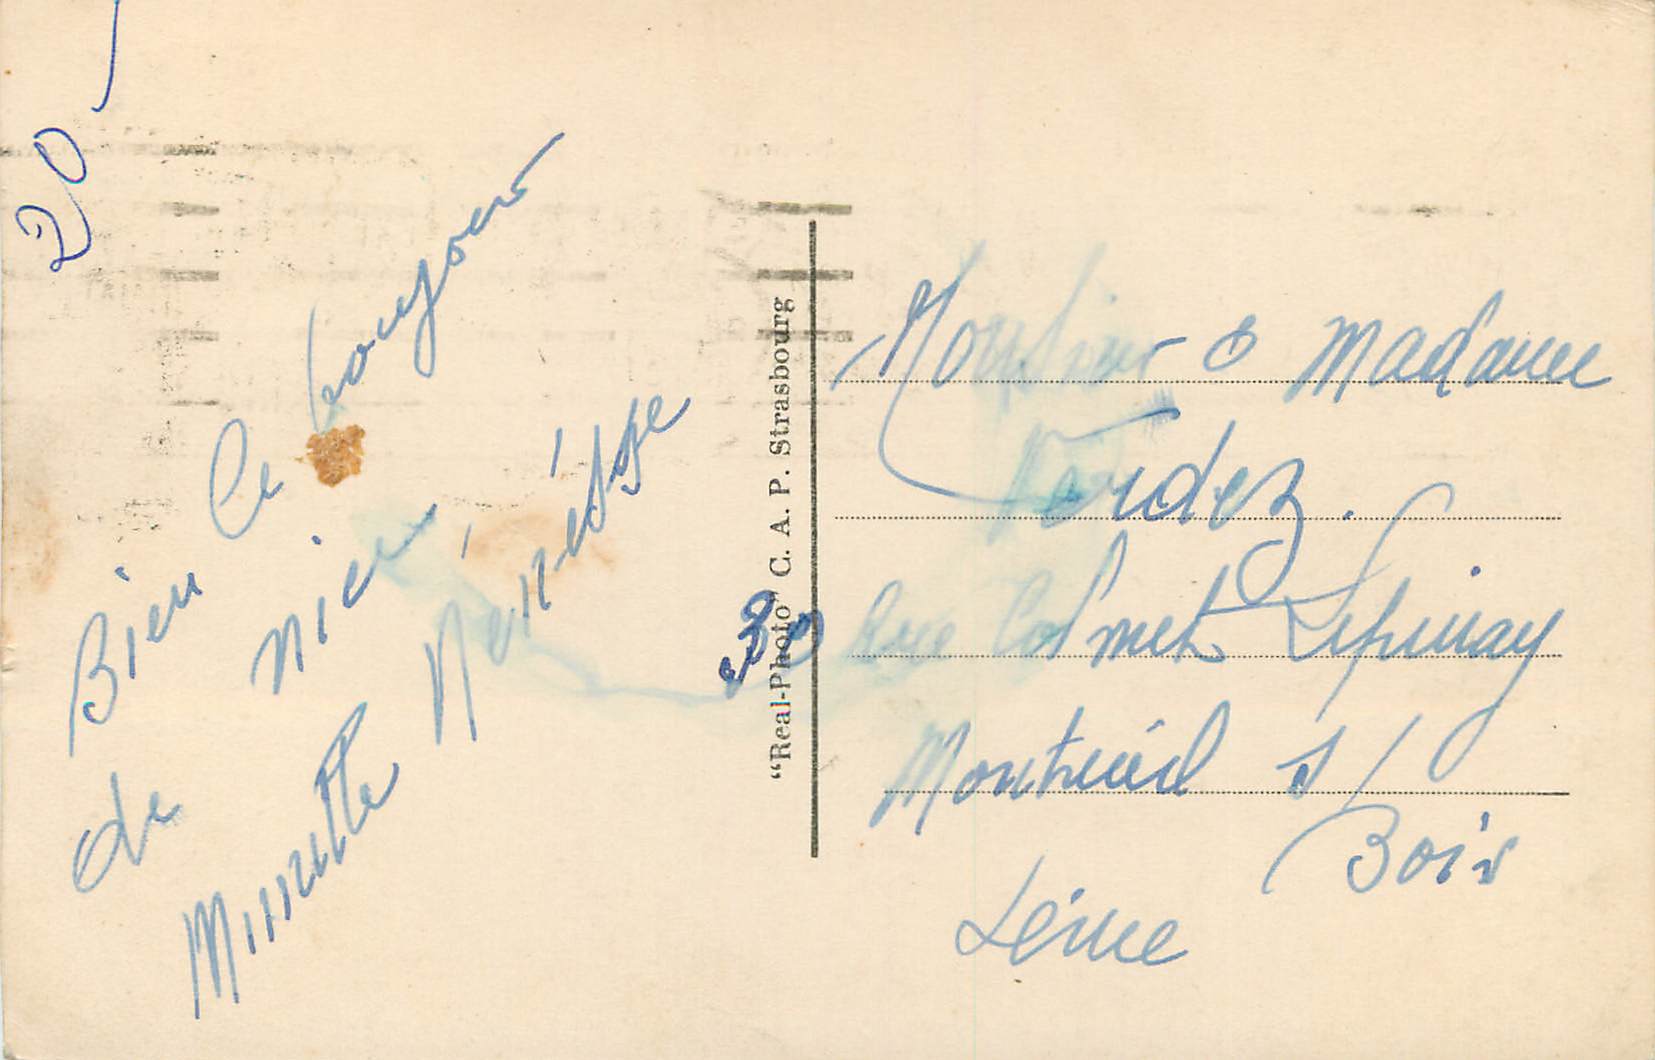 20
Bien le bonjour
de Nice
Minette Ménèdge
"Real-Photo" C. A. P. Strasbourg
Monsieur & Madame
Vardez.
30 Rue Colmet Lépinay
Montreuil s/
Bois
Seine